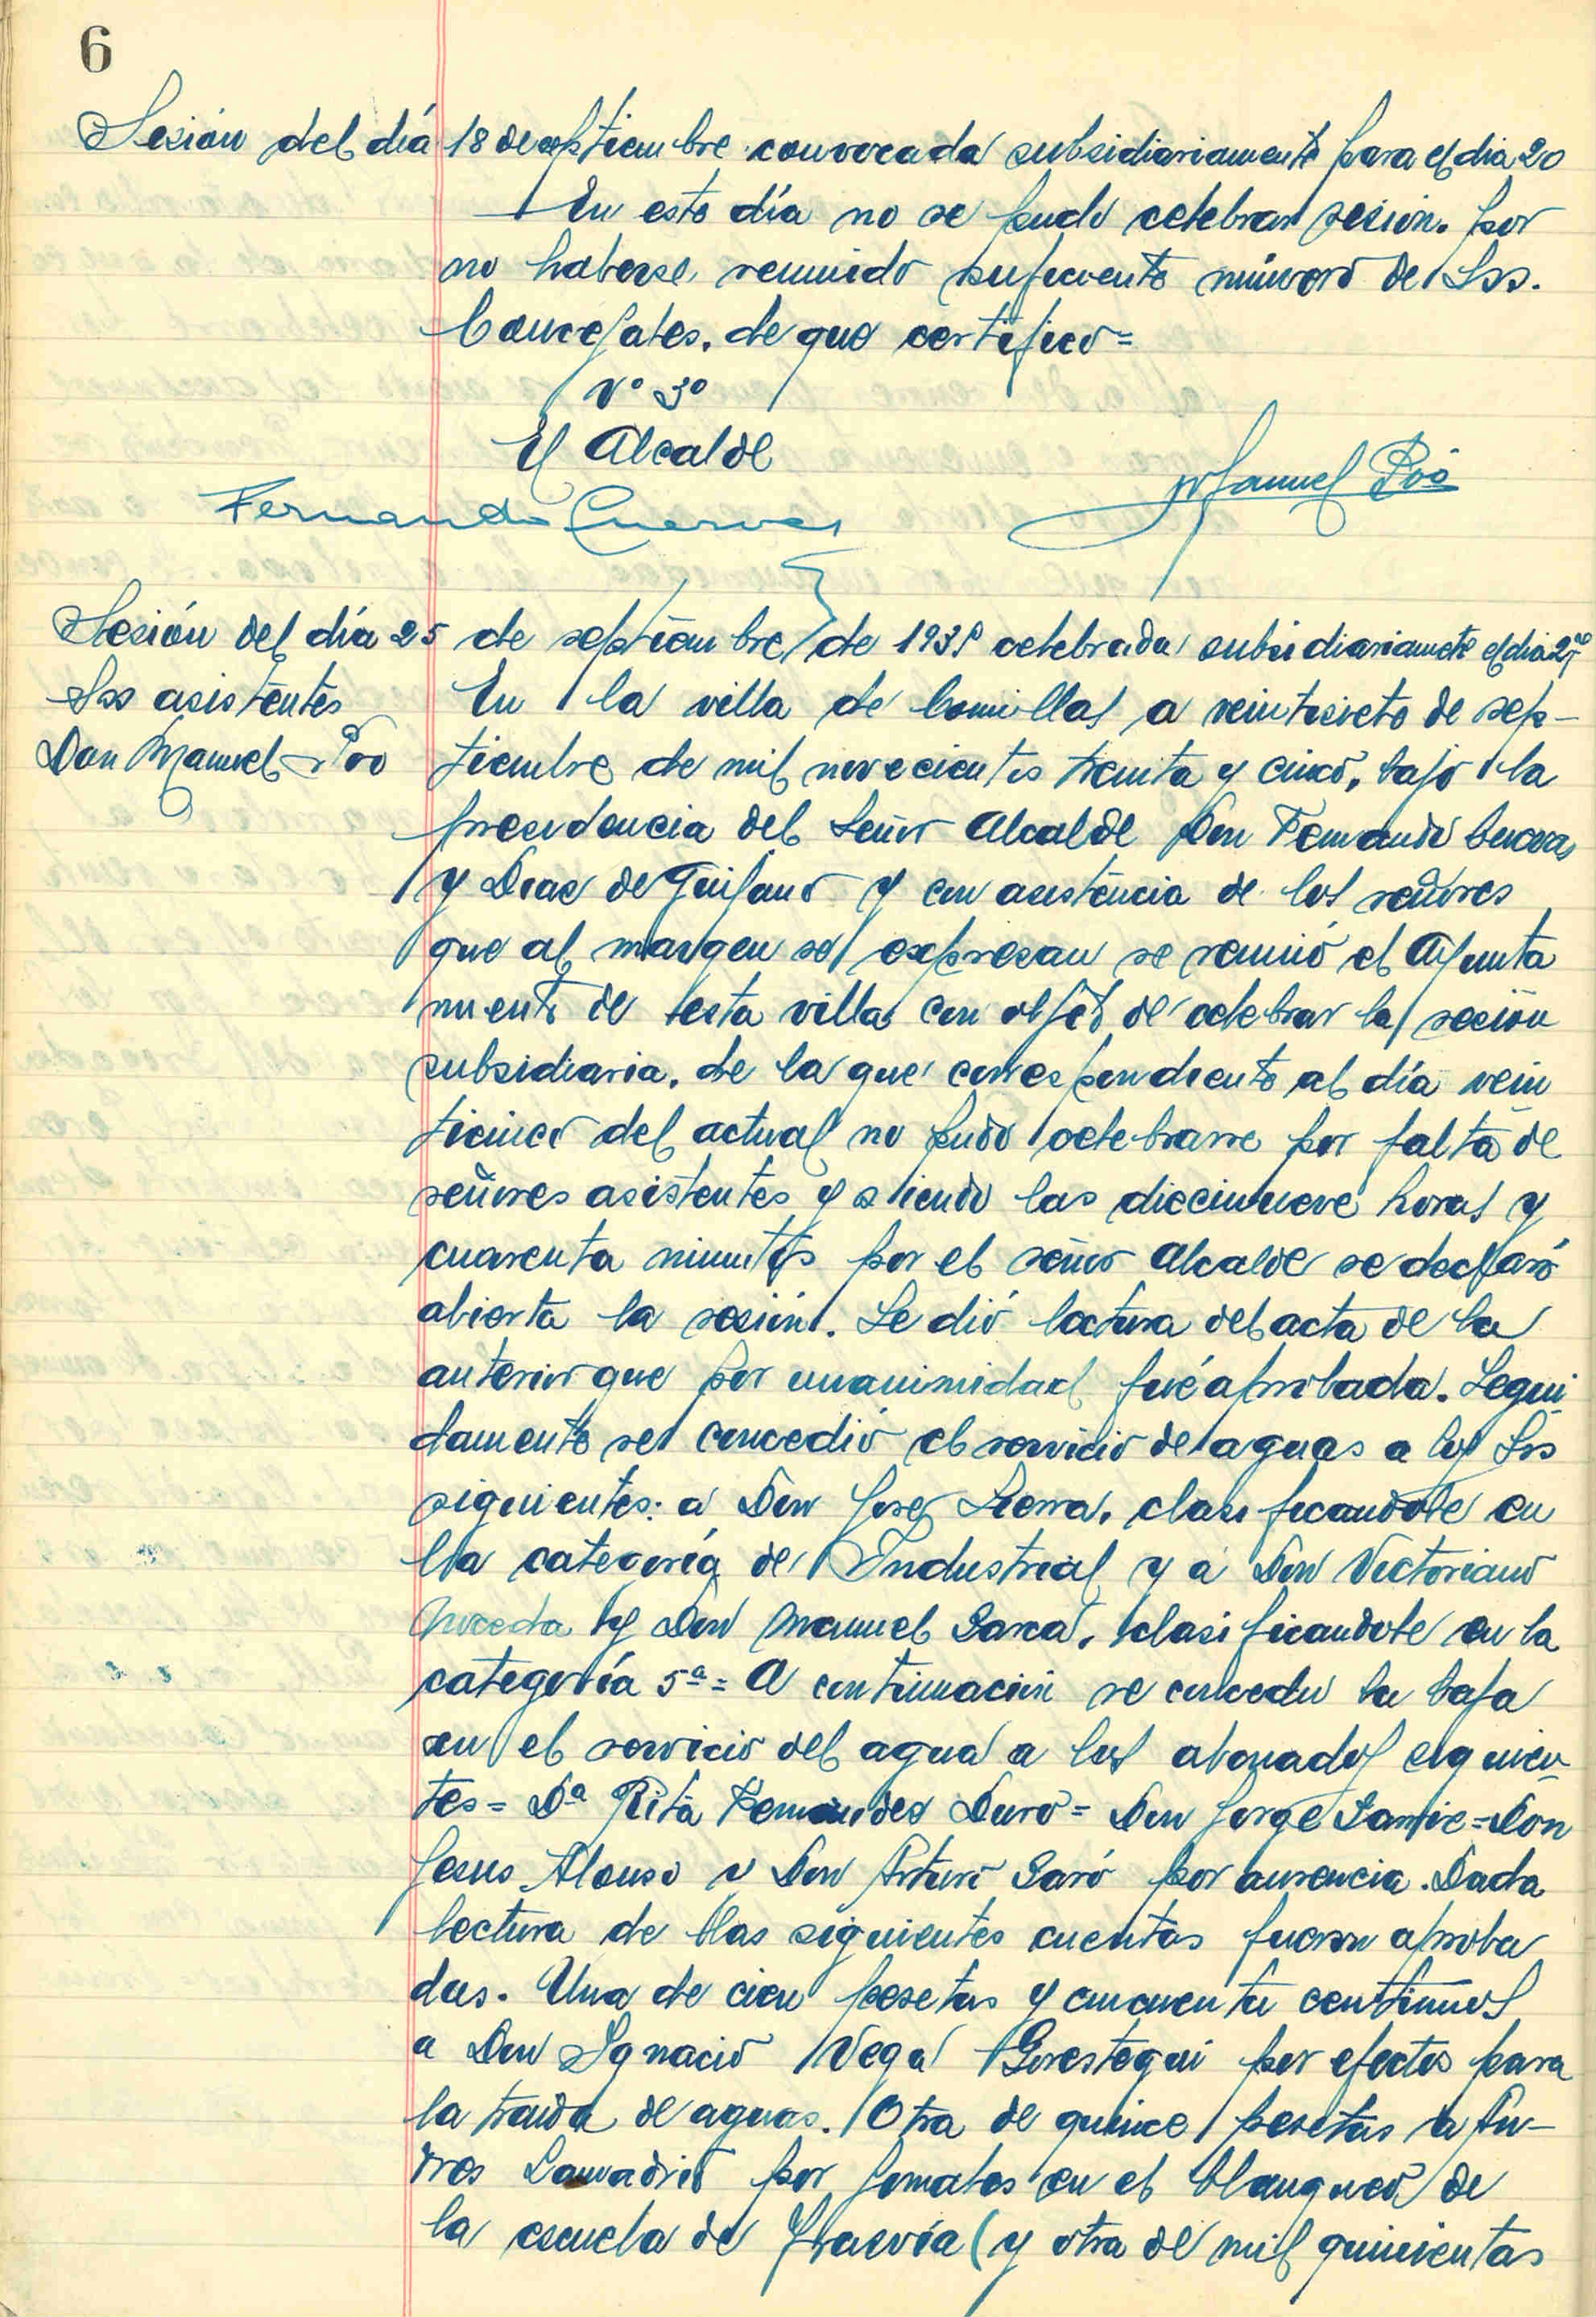 6
Sesión del día 18 de septiembre convocada subsidiariamente para el dia 20
En este día no se pudo celebrar sesion. por
no haberse reunido suficiente número de Sss.
Concejales, de que certifico=
Vº Bº
El Alcalde
Manuel Poo
Fernando Cuevas
Sesión del día 25 de septiembre de 1935 celebrada subsidiariamete el dia 27
Sss asistentes
Don Manuel Poo
En la villa de Comillas a veintisiete de sep-
tiembre de mil novecientos treinta y cinco, bajo la
presidencia del Señor Alcalde Don Fernando Cuevas
y Diaz de Guijano y con asistencia de los señores
que al margen se expresan se reunió el Ayunta
miento de esta villa con objeto de celebrar la sesión
subsidiaria, de la que correspondiente al día vein
ticinco del actual no pudo celebrarse por falta de
señores asistentes y siendo las diecinueve horas y
cuarenta minutos por el señor Alcalde se declaró
abierta la sesión. Se dió lectura del acta de la
anterior que por unanimidad fué aprobada. Segui
damente se concedió el servicio de aguas a los Srs
siguientes: a Don Jose Sierra, clasificandole en
la categoría de Industrial y a Don Victoriano
y Don Manuel clasificandole en la
categoría 5ª= A continuación se concedio la baja
en el servicio del agua a los abonados siguien-
tes= Dª Rita Fernandez Duro= Don Jorge =Don
Jesus Alonso y Don Arturo Saró por ausencia. Dada
lectura de las siguientes cuentas fueron aproba
das. Una de cien pesetas y cincuenta centimos
a Don Ignacio Vega Gorostegui por efectos para
la traida de aguas. Otra de quince pesetas a An-
dres Lamadrid por jornales en el blanqueo de
la escuela de Trasvía y otra de mil quinientas